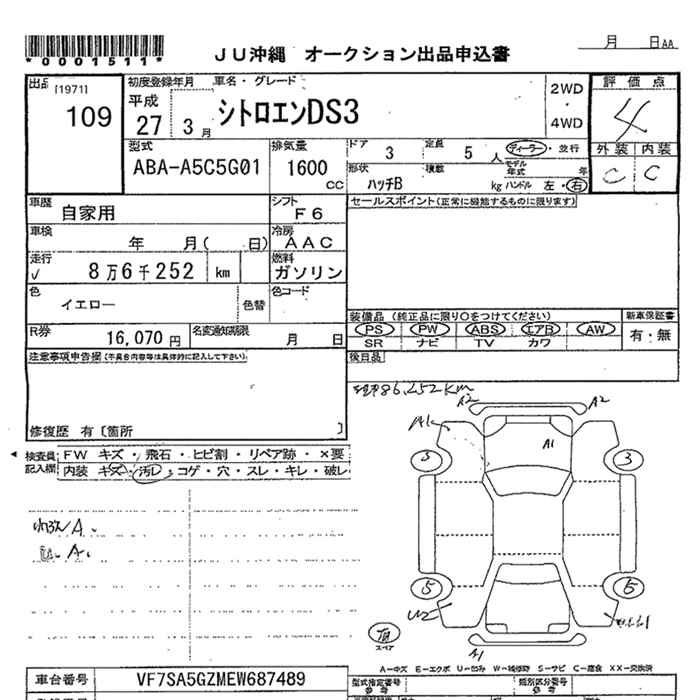 *0001511*
JU沖縄 オークション出品申込書
月 日AA
出品 [1971]
109
初度登録年月 車名・グレード
平成
27 3月
シトロエンDS3
2WD
・
4WD
評価点
4
外装 内装
C C
型式
ABA-A5C5G01
排気量
1600
CC
ドア 3 定員 5 人
ディーラー・並行
形状 ハッチB 積載 kg
モデル年式 年
ハンドル 左・右
車歴 自家用
シフト F6
セールスポイント(正常に機能するものに限ります)
車検 年 月( 日)
冷房 AAC
走行 √ 8万6千252 km
燃料 ガソリン
色 イエロー 色替
色コード
装備品 (純正品に限り○をつけてください)
新車保証書
PS PW ABS エアB AW
SR ナビ TV カワ
有・無
R券 16,070 円
名変通知期限 月 日
後日品
注意事項申告欄(不具合内容等は具体的に記入して下さい)
修復歴 有〔箇所 〕
86,252Km
検査員記入欄
FW キズ・飛石・ヒビ割・リペア跡・×要
内装 キズ・汚レ・コゲ・穴・スレ・キレ・破レ
A2 A2
A1
A1
3 3
A.
A.
5 5
U2
A1
スペア
A-キズ E-エクボ U-凹み W-補修跡 S-サビ C-腐食 XX-交換済
車台番号 VF7SA5GZMEW687489
型式指定番号
参考
類別区分番号
参考